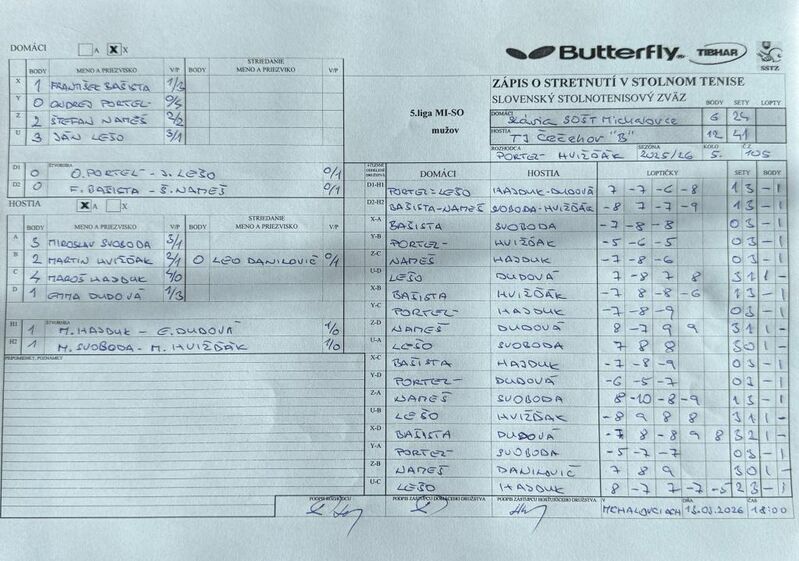 DOMÁCI A X X
Butterfly TIBHAR SSTZ
BODY MENO A PRIEZVISKO V/P BODY STRIEDANIE MENO A PRIEZVIKO V/P
X 1 FRANTIŠEK BAŠISTA 1/3
Y 0 ONDREJ PORTEL 0/4
Z 2 ŠTEFAN NAMEŠ 2/2
U 3 JÁN LEŠO 3/1
D1 0 ŠTVORHRA O. PORTEL - J. LEŠO 0/1
D2 0 F. BAŠISTA - Š. NAMEŠ 0/1
HOSTIA A X X
BODY MENO A PRIEZVISKO V/P BODY STRIEDANIE MENO A PRIEZVISKO V/P
A 3 MIROSLAV SVOBODA 3/1
B 2 MARTIN HVIŽĎÁK 2/1 0 LEO DANILOVIČ 0/1
C 4 MAROŠ HAJDUK 4/0
D 1 EMMA DUDOVÁ 1/3
H1 1 ŠTVORHRA M. HAJDUK - E. DUDOVÁ 1/0
H2 1 M. SVOBODA - M. HVIŽĎÁK 1/0
PRIPOMIENKY, POZNÁMKY
ZÁPIS O STRETNUTÍ V STOLNOM TENISE
SLOVENSKÝ STOLNOTENISOVÝ ZVÄZ BODY SETY LOPTY
5.liga MI-SO
mužov
DOMÁCI Slávia SOŠT Michalovce 6 24
HOSTIA TJ Čečehov "B" 12 41
ROZHODCA PORTEL- HVIŽĎÁK SEZÓNA 2025/26 KOLO 5. Č.Z. 105
DOMÁCI HOSTIA LOPTIČKY SETY BODY
D1-H1 PORTEL-LEŠO HAJDUK-DUDOVÁ 7 -7 -6 -8 1 3 - 1
D2-H2 BAŠISTA-NAMEŠ SVOBODA-HVIŽĎÁK -8 7 -7 -9 1 3 - 1
X-A BAŠISTA SVOBODA -7 -8 -8 0 3 - 1
Y-B PORTEL HVIŽĎÁK -5 -6 -5 0 3 - 1
Z-C NAMEŠ HAJDUK -7 -8 -6 0 3 - 1
U-D LEŠO DUDOVÁ 7 -8 7 8 3 1 1 -
X-B BAŠISTA HVIŽĎÁK -7 8 -8 -6 1 3 - 1
Y-C PORTEL HAJDUK -7 -8 -9 0 3 - 1
Z-D NAMEŠ DUDOVÁ 8 -7 9 9 3 1 1 -
U-A LEŠO SVOBODA 7 8 8 3 0 1 -
X-C BAŠISTA HAJDUK -7 -8 -9 0 3 - 1
Y-D PORTEL DUDOVÁ -6 -5 -7 0 3 - 1
Z-A NAMEŠ SVOBODA 8 -10 -8 -9 1 3 - 1
U-B LEŠO HVIŽĎÁK -8 9 8 8 3 1 1 -
X-D BAŠISTA DUDOVÁ -7 8 -8 9 8 3 2 1 -
Y-A PORTEL SVOBODA -5 -7 -7 0 3 - 1
Z-B NAMEŠ DANILOVIČ 7 8 9 3 0 1 -
U-C LEŠO HAJDUK 8 -7 7 -7 -5 2 3 - 1
PODPIS ROZHODCU PODPIS ZÁSTUPCU DOMÁCEHO DRUŽSTVA PODPIS ZÁSTUPCU HOSŤUJÚCEHO DRUŽSTVA V MICHALOVCIACH DŇA 2026 ČAS 18:00